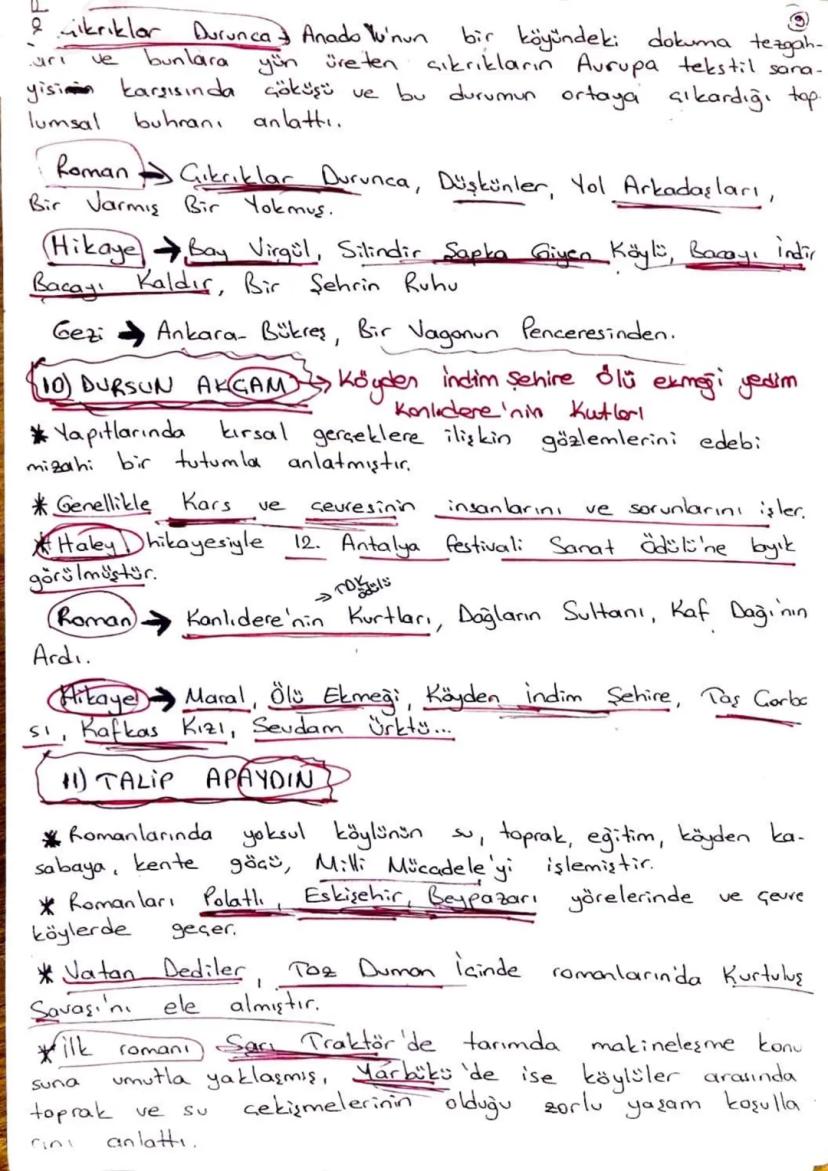 9
Çıkrıklar Durunca → Anadolu'nun bir köyündeki dokuma tezgah-
ları ve bunlara yün üreten çıkrıkların Avrupa tekstil sana-
yisinin karşısında çöküşü ve bu durumun ortaya çıkardığı top-
lumsal buhranı anlattı.
Roman → Çıkrıklar Durunca, Düşkünler, Yol Arkadaşları,
Bir Varmış Bir Yokmuş.
Hikaye → Bay Virgül, Silindir Şapka Giyen Köylü, Bacayı İndir
Bacayı Kaldır, Bir Şehrin Ruhu
Gezi → Ankara-Bükreş, Bir Vagonun Penceresinden.
10) DURSUN AKÇAM → Köyden indim şehire Ölü ekmeği yedim
Kanlıdere'nin Kutları
* Yapıtlarında kırsal gerçeklere ilişkin gözlemlerini edebi
mizahi bir tutumla anlatmıştır.
* Genellikle Kars ve çevresinin insanlarını ve sorunlarını işler.
* Haley hikayesiyle 12. Antalya festivali Sanat Ödülü'ne layık
görülmüştür.
→ TDK ödülü
Roman → Kanlıdere'nin Kurtları, Dağların Sultanı, Kaf Dağı'nın
Ardı.
Hikaye → Maral, Ölü Ekmeği, Köyden İndim Şehire, Taş Çorba
sı, Kafkas Kızı, Sevdam Ürktü...
11) TALİP APAYDIN
* Romanlarında yoksul köylünün su, toprak, eğitim, köyden ka-
sabaya, kente göçü, Milli Mücadele'yi işlemiştir.
* Romanları Polatlı, Eskişehir, Beypazarı yörelerinde ve çevre
köylerde geçer.
* Vatan Dediler, Toz Duman İçinde romanlarında Kurtuluş
Savaşı'nı ele almıştır.
* İlk romanı Sarı Traktör'de tarımda makineleşme konu
suna umutla yaklaşmış, Yarbükü'de ise köylüler arasında
toprak ve su çekişmelerinin olduğu zorlu yaşam koşulla
rını anlattı.